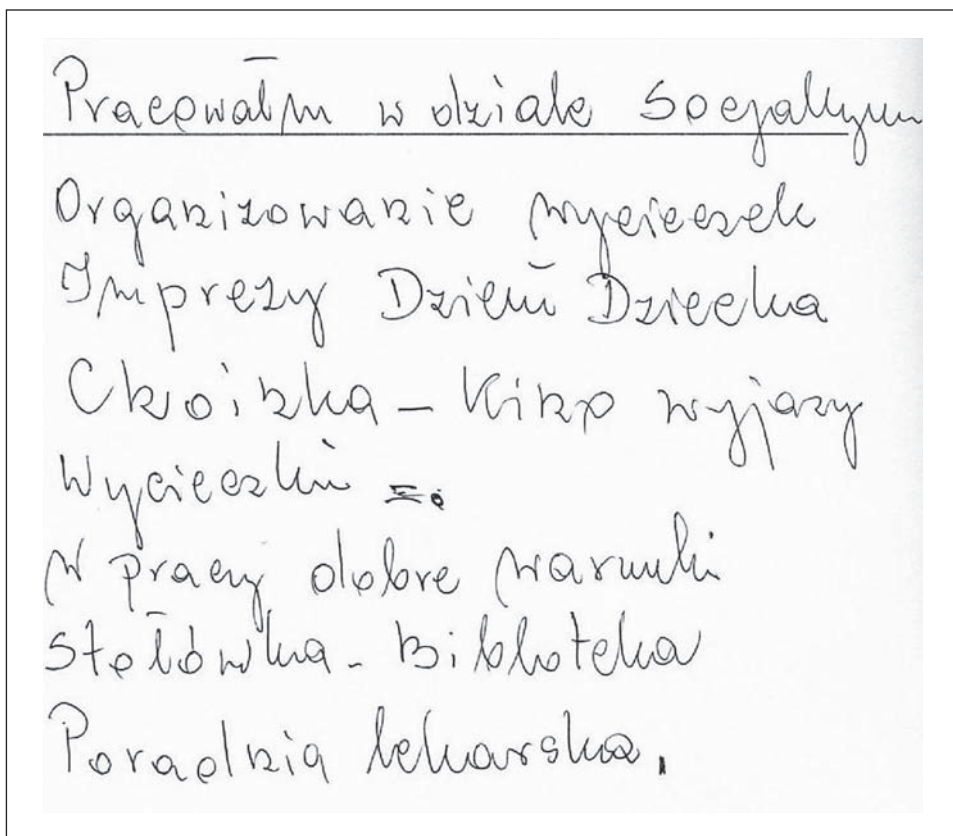 Pracowałm w dziale Socjallym
Organizowanie wycieczek
Imprezy Dzień Dziecka
Ckoinka - Kino wyjazy
Wycieczkiu
W pracy dobre warunki
Stołówka - Biblioteka
Poradnia lekarska.